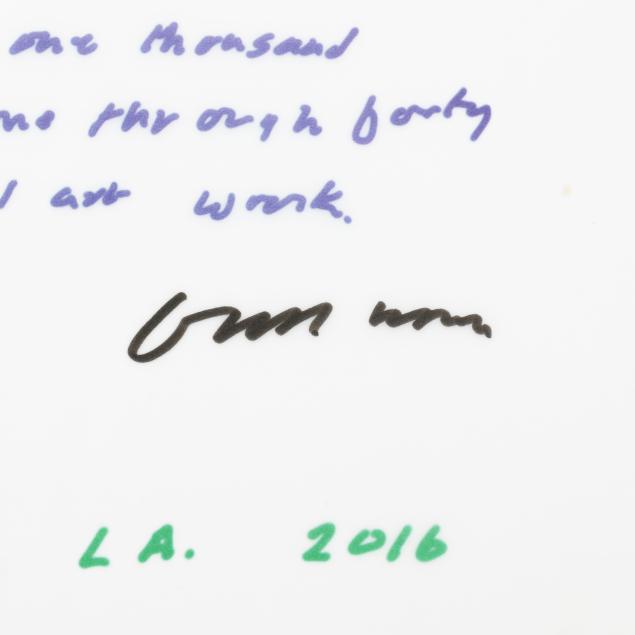 one thousand
through forty
art work.
L A. 2016